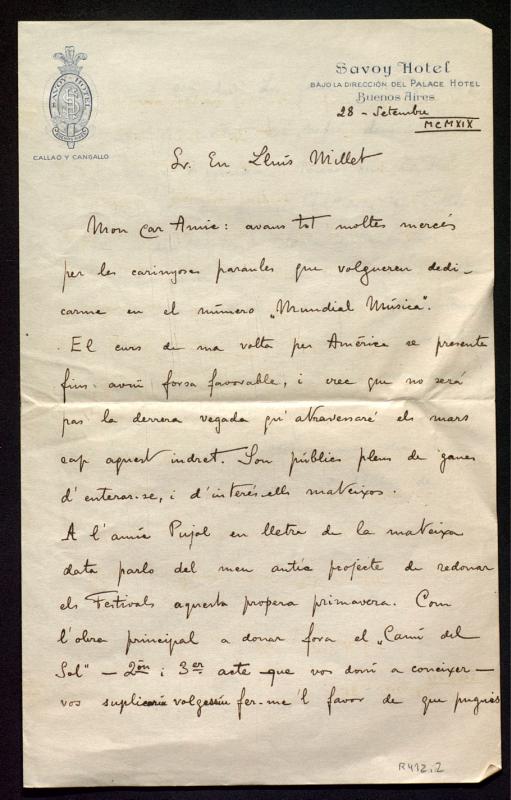 SAVOY HOTEL
BUENOS AIRES
CALLAO Y CANGALLO
Savoy Hotel
BAJO LA DIRECCIÓN DEL PALACE HOTEL
Buenos Aires
28 - Setembre
MCMXIX
Sr. En Lluis Millet
Mon car Amic: avans tot moltes mercés
per les carinyoses paraules que volgueren dedi-
carme en el número „Mundial Música".
El curs de ma volta per América se presenta
fins avui forsa favorable, i crec que no será
pas la derrera vegada qu' atravessaré els mars
cap aquest indret. Son públics plens de ganes
d'enterar-se, i d'interés ells mateixos.
A l'amic Pujol en lletra de la mateixa
data parlo del meu antic projecte de redonar
els Festivals aquesta propera primavera. Com
l'obra principal a donar fora el „Camí del
Sol" - 2on i 3er acte - que vos doní a coneixer -
vos suplicaria volgessiu fer-me'l favor de que pugués
R432,2